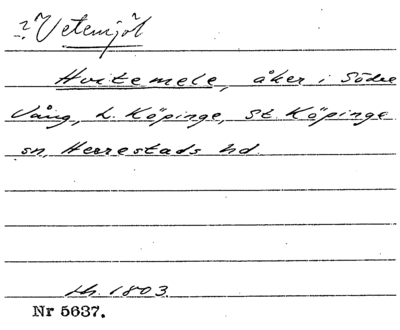 ? Vetemjöl
Hvitemele, åker i Södre
Vång, L. Köpinge, St. Köpinge
sn, Herrestads hd.
Lh. 1803
Nr 5637.